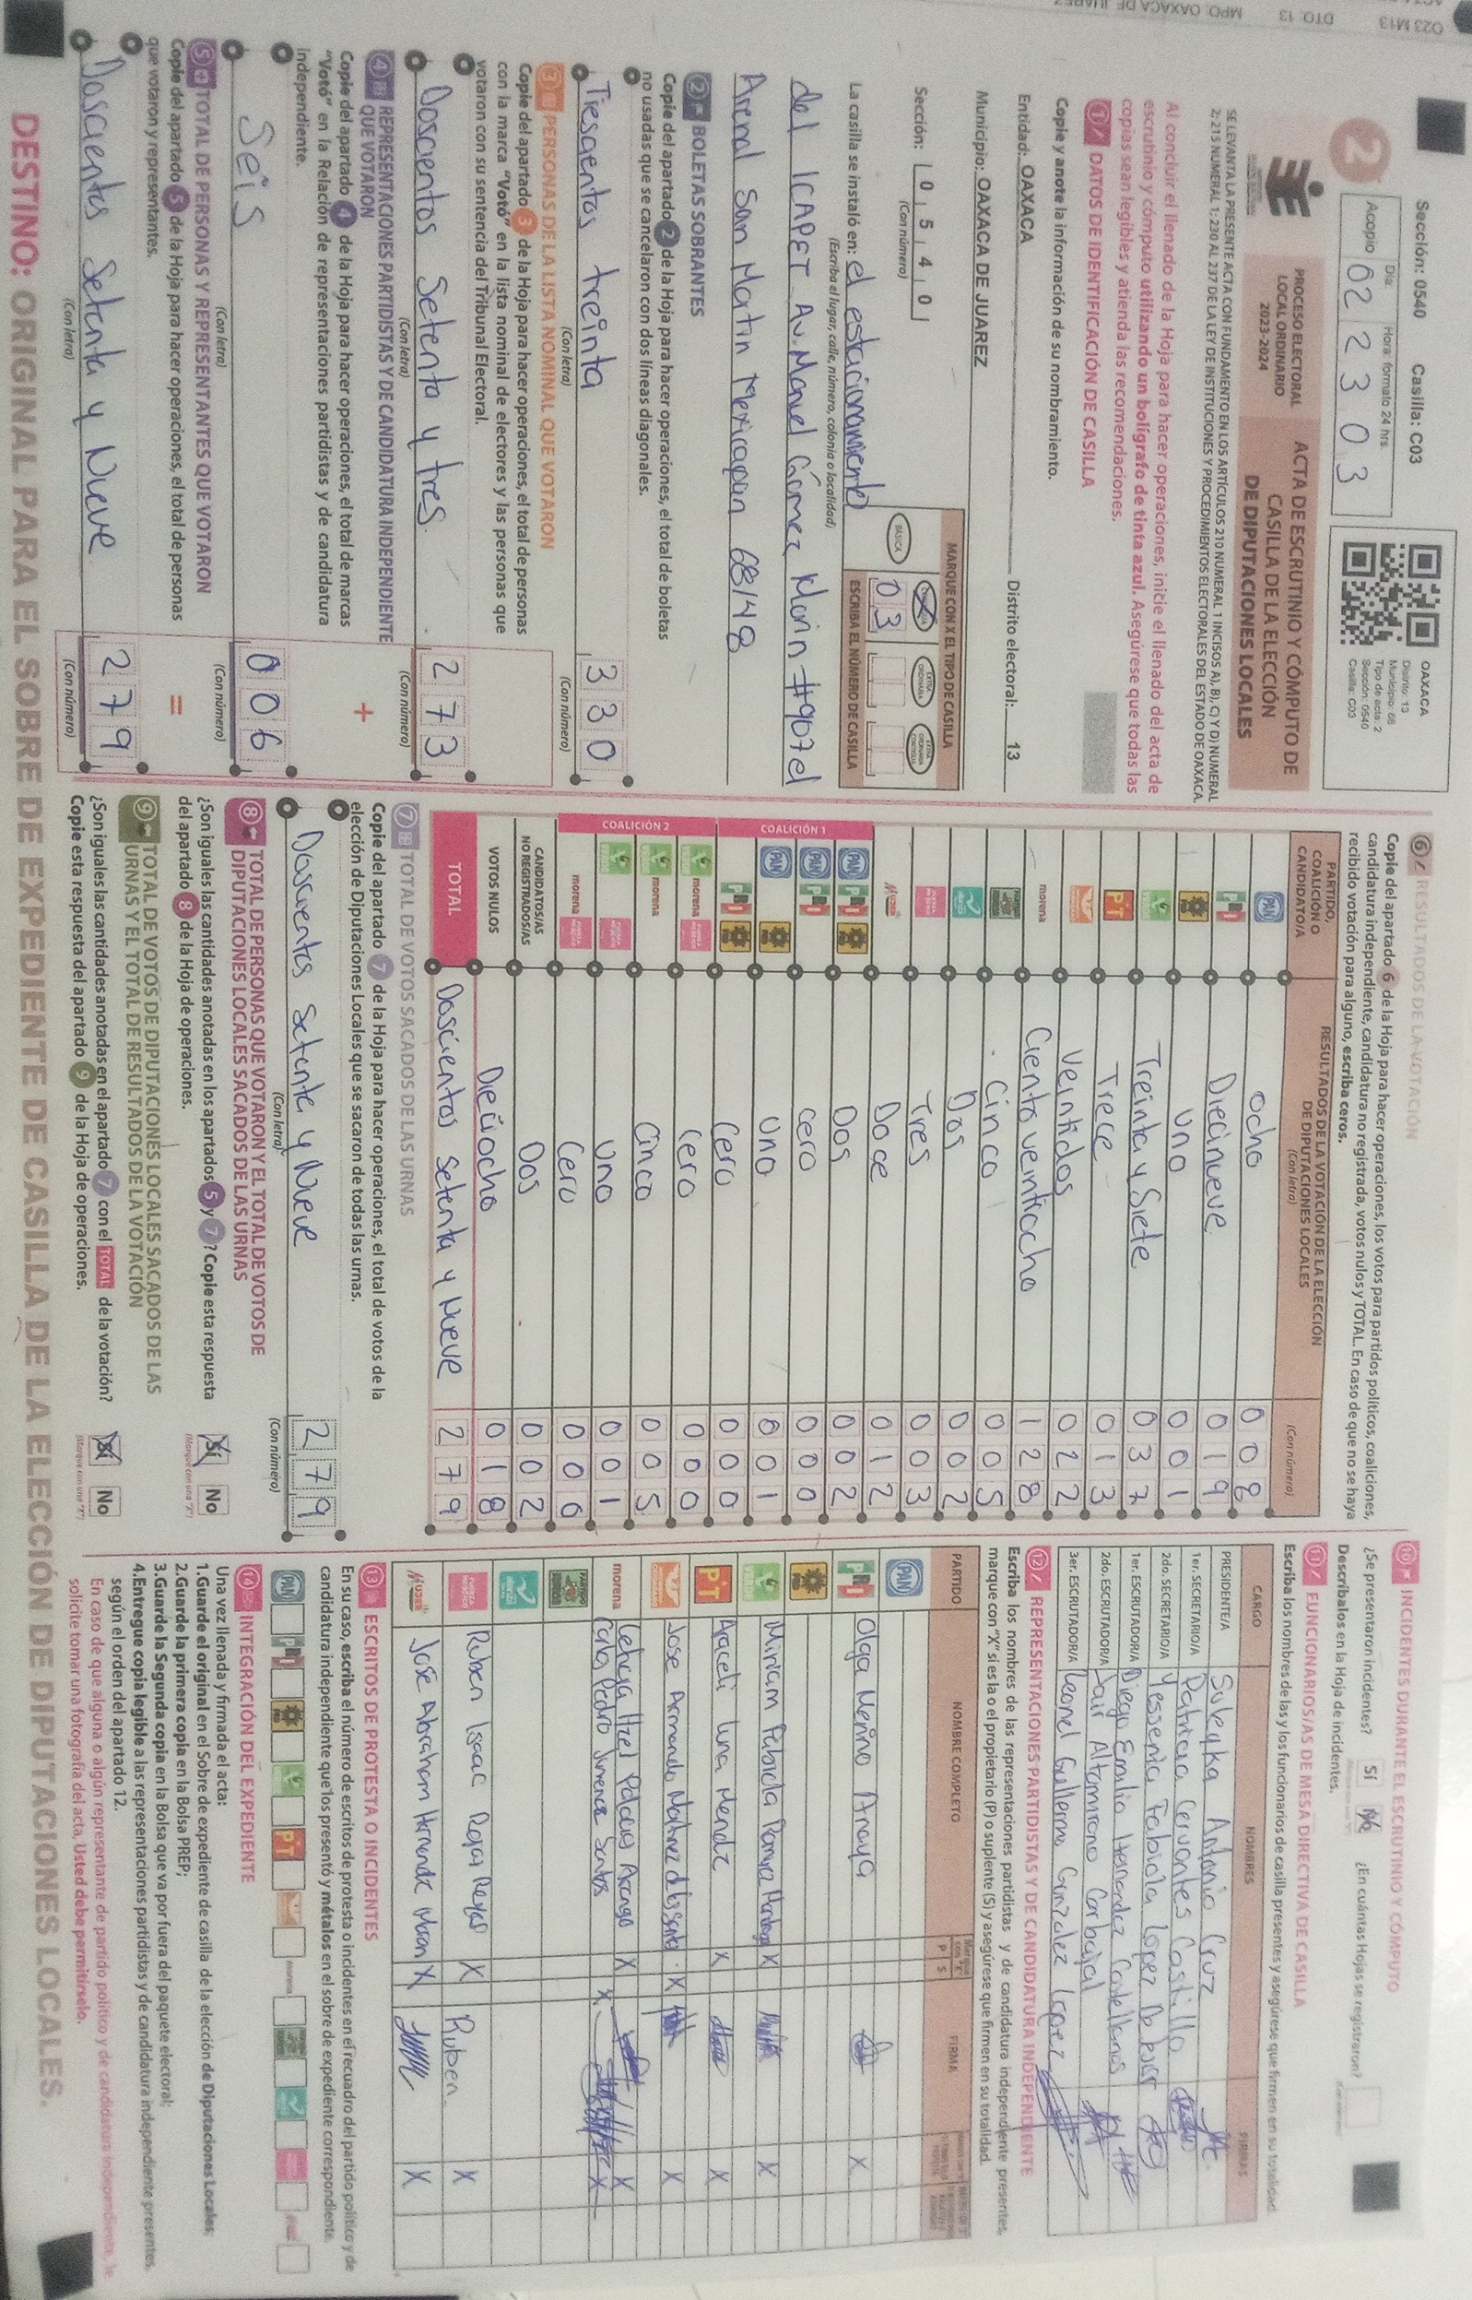 Sección: 0540 Casilla: C03
2
Acopio
Día:
Hora: formato 24 hrs.
02 23 03
OAXACA
Distrito: 13
Municipio: 66
Tipo de acta: 2
Sección: 0540
Casilla: C03
PROCESO ELECTORAL
LOCAL ORDINARIO
2023-2024
ACTA DE ESCRUTINIO Y CÓMPUTO DE
CASILLA DE LA ELECCIÓN
DE DIPUTACIONES LOCALES
SE LEVANTA LA PRESENTE ACTA CON FUNDAMENTO EN LOS ARTÍCULOS 210 NUMERAL 1 INCISOS A), B), C) Y D) NUMERAL
2; 215 NUMERAL 1; 230 AL 237 DE LA LEY DE INSTITUCIONES Y PROCEDIMIENTOS ELECTORALES DEL ESTADO DE OAXACA.
Al concluir el llenado de la Hoja para hacer operaciones, inicie el llenado del acta de
escrutinio y cómputo utilizando un bolígrafo de tinta azul. Asegúrese que todas las
copias sean legibles y atienda las recomendaciones.
1 DATOS DE IDENTIFICACIÓN DE CASILLA
Copie y anote la información de su nombramiento.
Entidad: OAXACA Distrito electoral: 13
Municipio: OAXACA DE JUAREZ
Sección: 0 5 4 0
(Con número)
MARQUE CON X EL TIPO DE CASILLA
BÁSICA
ESCRIBA EL NÚMERO DE CASILLA
03
La casilla se instaló en: el estacionamiento
(Escriba el lugar, calle, número, colonia o localidad)
del ICAPET Av. Manuel Gómez Morin #907 el
Arenal San Martin Mexicapan 68148
2 BOLETAS SOBRANTES
Copie del apartado 2 de la Hoja para hacer operaciones, el total de boletas
no usadas que se cancelaron con dos líneas diagonales.
Tresientos treinta 330
(Con letra) (Con número)
3 PERSONAS DE LA LISTA NOMINAL QUE VOTARON
Copie del apartado 3 de la Hoja para hacer operaciones, el total de personas
con la marca "Votó" en la lista nominal de electores y las personas que
votaron con su sentencia del Tribunal Electoral.
Doscientos Setenta y tres. 273
(Con letra) (Con número)
4 REPRESENTACIONES PARTIDISTAS Y DE CANDIDATURA INDEPENDIENTE
QUE VOTARON
+
Copie del apartado 4 de la Hoja para hacer operaciones, el total de marcas
"Votó" en la Relación de representaciones partidistas y de candidatura
independiente.
Seis 006
(Con letra) (Con número)
5 TOTAL DE PERSONAS Y REPRESENTANTES QUE VOTARON
=
Copie del apartado 5 de la Hoja para hacer operaciones, el total de personas
que votaron y representantes.
Doscientos Setenta y Nueve 279
(Con letra) (Con número)
6 RESULTADOS DE LA VOTACIÓN
Copie del apartado 6 de la Hoja para hacer operaciones, los votos para partidos políticos, coaliciones,
candidatura independiente, candidatura no registrada, votos nulos y TOTAL. En caso de que no se haya
recibido votación para alguno, escriba ceros.
PARTIDO,
COALICIÓN O
CANDIDATO/A
RESULTADOS DE LA VOTACIÓN DE LA ELECCIÓN
DE DIPUTACIONES LOCALES
(Con letra)
(Con número)
PAN ocho 008
PRI Diecinueve 019
PRD Uno 001
Treinta y Siete 037
PT Trece 013
Veintidos 022
morena Ciento veintiocho 128
Cinco 005
Dos 002
Tres 003
Doce 012
COALICIÓN 1
PAN PRI PRD Dos 002
PAN PRI cero 000
PAN PRD Uno 001
PRI PRD Cero 000
COALICIÓN 2
morena Cero 000
morena Cinco 005
Uno 001
morena Cero 000
CANDIDATOS/AS
NO REGISTRADOS/AS Dos 002
VOTOS NULOS Dieciocho 018
TOTAL Doscientos setenta y Nueve 279
7 TOTAL DE VOTOS SACADOS DE LAS URNAS
Copie del apartado 7 de la Hoja para hacer operaciones, el total de votos de la
elección de Diputaciones Locales que se sacaron de todas las urnas.
Doscientos Setenta y Nueve 279
(Con letra) (Con número)
8 TOTAL DE PERSONAS QUE VOTARON Y EL TOTAL DE VOTOS DE
DIPUTACIONES LOCALES SACADOS DE LAS URNAS
¿Son iguales las cantidades anotadas en los apartados 5 y 7? Copie esta respuesta
del apartado 8 de la Hoja de operaciones.
Sí No
(Marque con una "X")
9 TOTAL DE VOTOS DE DIPUTACIONES LOCALES SACADOS DE LAS
URNAS Y EL TOTAL DE RESULTADOS DE LA VOTACIÓN
¿Son iguales las cantidades anotadas en el apartado 7 con el TOTAL de la votación?
Copie esta respuesta del apartado 9 de la Hoja de operaciones.
Sí No
(Marque con una "X")
10 INCIDENTES DURANTE EL ESCRUTINIO Y CÓMPUTO
¿Se presentaron incidentes? Sí No ¿En cuántas Hojas se registraron?
Descríbalos en la Hoja de incidentes.
11 FUNCIONARIOS/AS DE MESA DIRECTIVA DE CASILLA
Escriba los nombres de las y los funcionarios de casilla presentes y asegúrese que firmen en su totalidad.
CARGO NOMBRES FIRMAS
PRESIDENTE/A Suleyka Antonio Cruz
1er. SECRETARIO/A Patricia Cervantes Castillo
2do. SECRETARIO/A Yessenia Fabiola López
1er. ESCRUTADOR/A Diego Emilio Hernandez Castellanos
2do. ESCRUTADOR/A Jair Altamirano Carbajal
3er. ESCRUTADOR/A Leonel Guillermo Gonzalez Lopez
12 REPRESENTACIONES PARTIDISTAS Y DE CANDIDATURA INDEPENDIENTE
Escriba los nombres de las representaciones partidistas y de candidatura independiente presentes,
marque con "X" si es la o el propietario (P) o suplente (S) y asegúrese que firmen en su totalidad.
PARTIDO NOMBRE COMPLETO P S FIRMA
PAN
PRI Olga Merino Araya X
PRD
Miriam Fabiola X X
PT Araceli Luna Mendez X X
Jose Armando Martinez X X
morena Leticia Itzel X X
Carlos Pedro Jimenez Santos X X
Ruben Isaac Rojas Reyes X Ruben X
José Abraham Hernandez X X
13 ESCRITOS DE PROTESTA O INCIDENTES
En su caso, escriba el número de escritos de protesta o incidentes en el recuadro del partido político y de
candidatura independiente que los presentó y métalos en el sobre de expediente correspondiente.
PAN PRI PRD PT morena
14 INTEGRACIÓN DEL EXPEDIENTE
Una vez llenada y firmada el acta:
1.Guarde el original en el Sobre de expediente de casilla de la elección de Diputaciones Locales;
2.Guarde la primera copia en la Bolsa PREP;
3.Guarde la Segunda copia en la Bolsa que va por fuera del paquete electoral;
4.Entregue copia legible a las representaciones partidistas y de candidatura independiente presentes,
según el orden del apartado 12.
En caso de que alguna o algún representante de partido político y de candidatura independiente, le
solicite tomar una fotografía del acta, Usted debe permitírselo.
DESTINO: ORIGINAL PARA EL SOBRE DE EXPEDIENTE DE CASILLA DE LA ELECCIÓN DE DIPUTACIONES LOCALES.